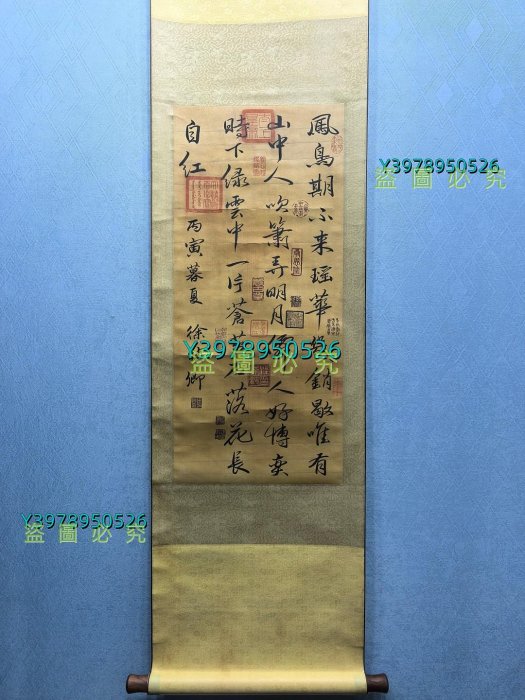 鳳鳥期不来瑶華銷歇唯有
山中人吹簫弄明月人好博奕
時下绿雲中一片蒼落花長
自红
丙寅暮夏
徐卿
Y3978950526
盜圖必究
Y3978950526
盜圖必究
Y3978950526
盜圖必究